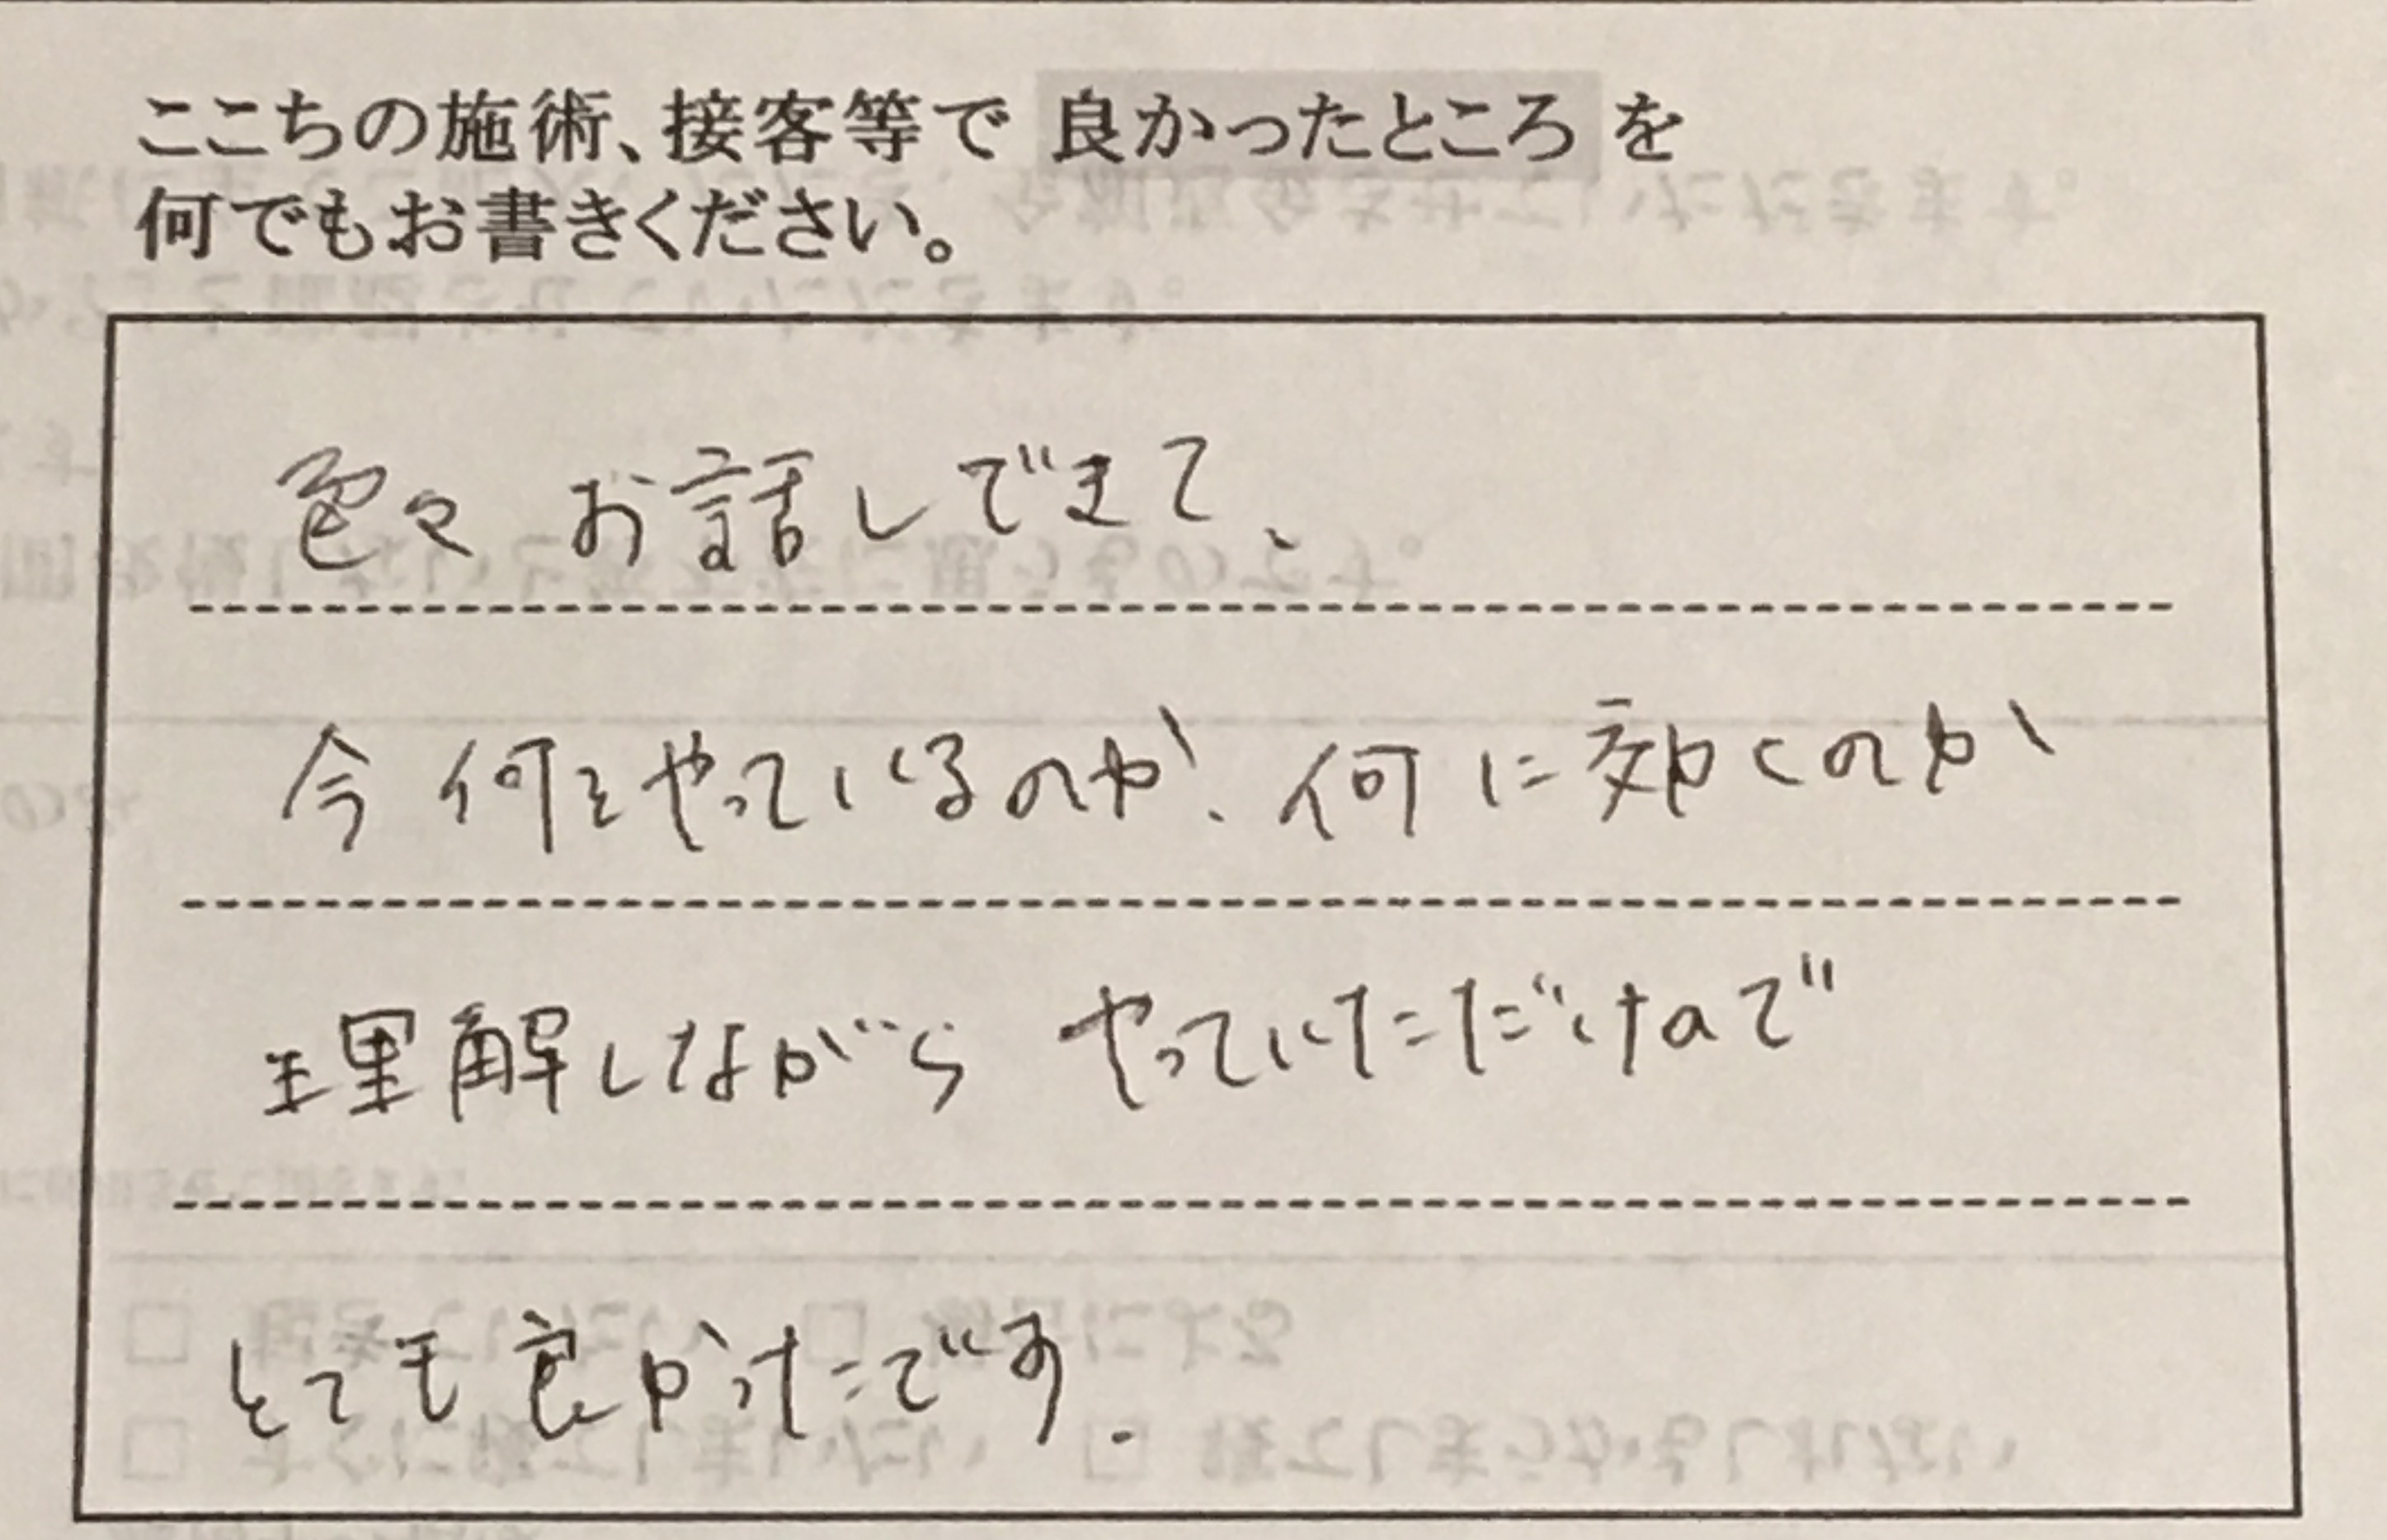 ここちの施術、接客等で 良かったところ を
何でもお書きください。
色々 お話しできて、
今 何をやっているのか、何に効くのか
理解しながら やっていただけたので
とても良かったです.